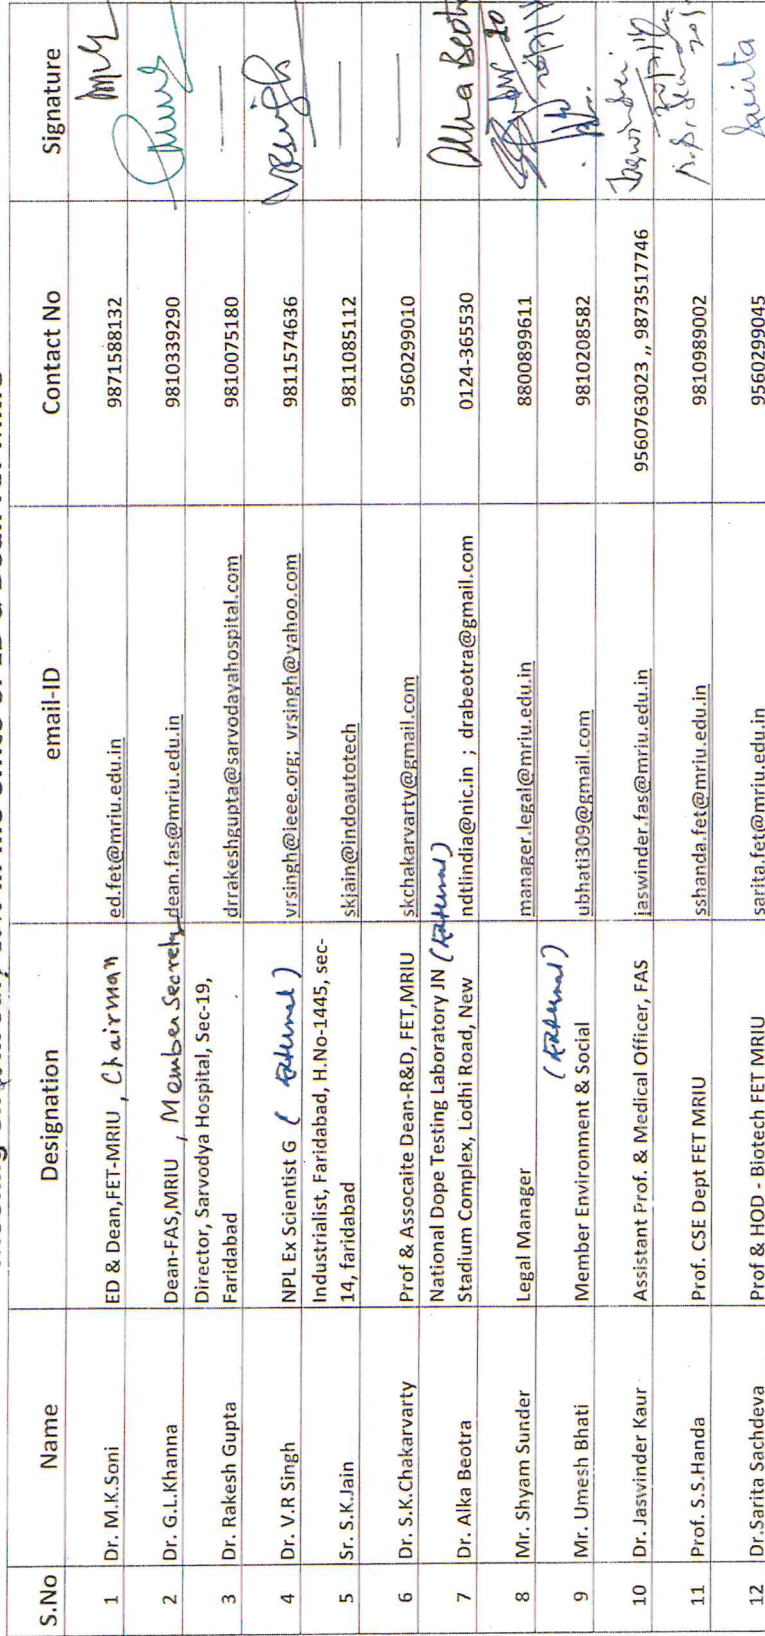 S.No Name Designation email-ID Contact No Signature
1 Dr. M.K.Soni ED & Dean,FET-MRIU , Chairman ed.fet@mriu.edu.in 9871588132
2 Dr. G.L.Khanna Dean-FAS,MRIU , Member Secretry dean.fas@mriu.edu.in 9810339290
3 Dr. Rakesh Gupta Director, Sarvodya Hospital, Sec-19,
Faridabad drrakeshgupta@sarvodayahospital.com 9810075180 —
4 Dr. V.R Singh NPL Ex Scientist G ( External ) vrsingh@ieee.org; vrsingh@yahoo.com 9811574636 VRSingh
5 Sr. S.K.Jain Industrialist, Faridabad, H.No-1445, sec-
14, faridabad skjain@indoautotech 9811085112 —
6 Dr. S.K.Chakarvarty Prof & Assocaite Dean-R&D, FET,MRIU skchakarvarty@gmail.com 9560299010 —
7 Dr. Alka Beotra National Dope Testing Laboratory JN (External)
Stadium Complex, Lodhi Road, New ndtlindia@nic.in ; drabeotra@gmail.com 0124-365530 Alka Beotra
8 Mr. Shyam Sunder Legal Manager manager.legal@mriu.edu.in 8800899611
9 Mr. Umesh Bhati Member Environment & Social (External) ubhati309@gmail.com 9810208582
10 Dr. Jaswinder Kaur Assistant Prof. & Medical Officer, FAS jaswinder.fas@mriu.edu.in 9560763023 ,, 9873517746 Jaswinder
11 Prof. S.S.Handa Prof. CSE Dept FET MRIU sshanda.fet@mriu.edu.in 9810989002
12 Dr.Sarita Sachdeva Prof & HOD - Biotech FET MRIU sarita.fet@mriu.edu.in 9560299045 Sarita